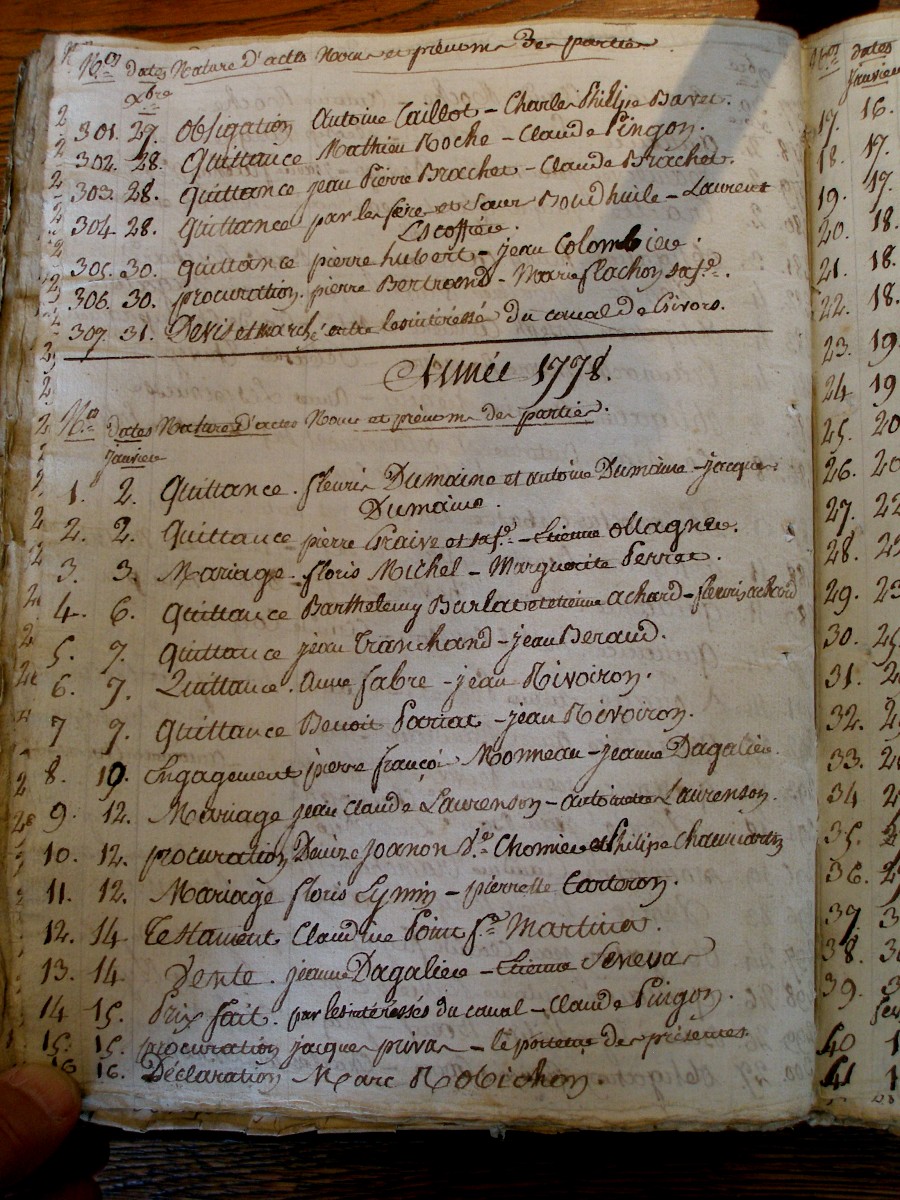 N.os dates Nature d'actes Noms et prénoms des parties
xbre
301. 27. Obligation Antoine Caillot - Charle Philipe
302. 28. Quittance Mathieu Roche - Claude Pingon.
303. 28. Quittance jean Pierre Brachet - Claude Brachet.
304 28. Quittance par les frère et Sœur Boudhuile - Laurent
Escoffier.
305. 30. Quittance pierre hubert - jean Colombier.
306. 30. procuration. pierre Bertrand - Marie flachon sa f.e.
307. 31. Devis et marché entre les intéressés du canal de Givors.
Année 1778.
N.os dates Nature d'actes Noms et prénoms des parties.
janvier
1. 2. Quittance. fleurie Dumaine et antoine Dumaine - jacques
Dumaine.
2. 2. Quittance pierre et sa f.e - Etienne Magnin.
3. 3. Mariage. floris Michel - Marguerite Perret.
4. 6. Quittance Barthelemy Burlat et etienne achard - fleuris achard
5. 7. Quittance jean Tranchand - jean Beraud.
6. 7. Quittance. Anne fabre - jean Rivoiron.
7 9. Quittance Benoit Pariat - jean Rivoiron.
8. 10. Engagement pierre françois Monneau - jeanne Dagalier.
9. 12. Mariage jean Claude Laurenson - antoinette Laurenson.
10. 12. procuration Denize Joanon V.e Chomier et Philipe
11. 12. Mariage floris - pierrette Carteron.
12. 14 Testament Claudine Point f.e Martinas
13. 14 Vente. jeanne Dagalier - Etienne Seneva
14 15. Prix fait. par les intéressés du canal - Claude Pingon.
15. 15. procuration jacques priva - le porteur des présentes
16 16. Déclaration Marc Robichon.
N.os dates
janvier
17. 16.
18. 17.
19. 17.
20. 18.
21. 18.
22. 18.
23. 19
24. 19
25. 20
26. 20
27. 22
28.
29. 23
30.
31.
32.
33.
34
35.
36.
37.
38.
39.
40
41